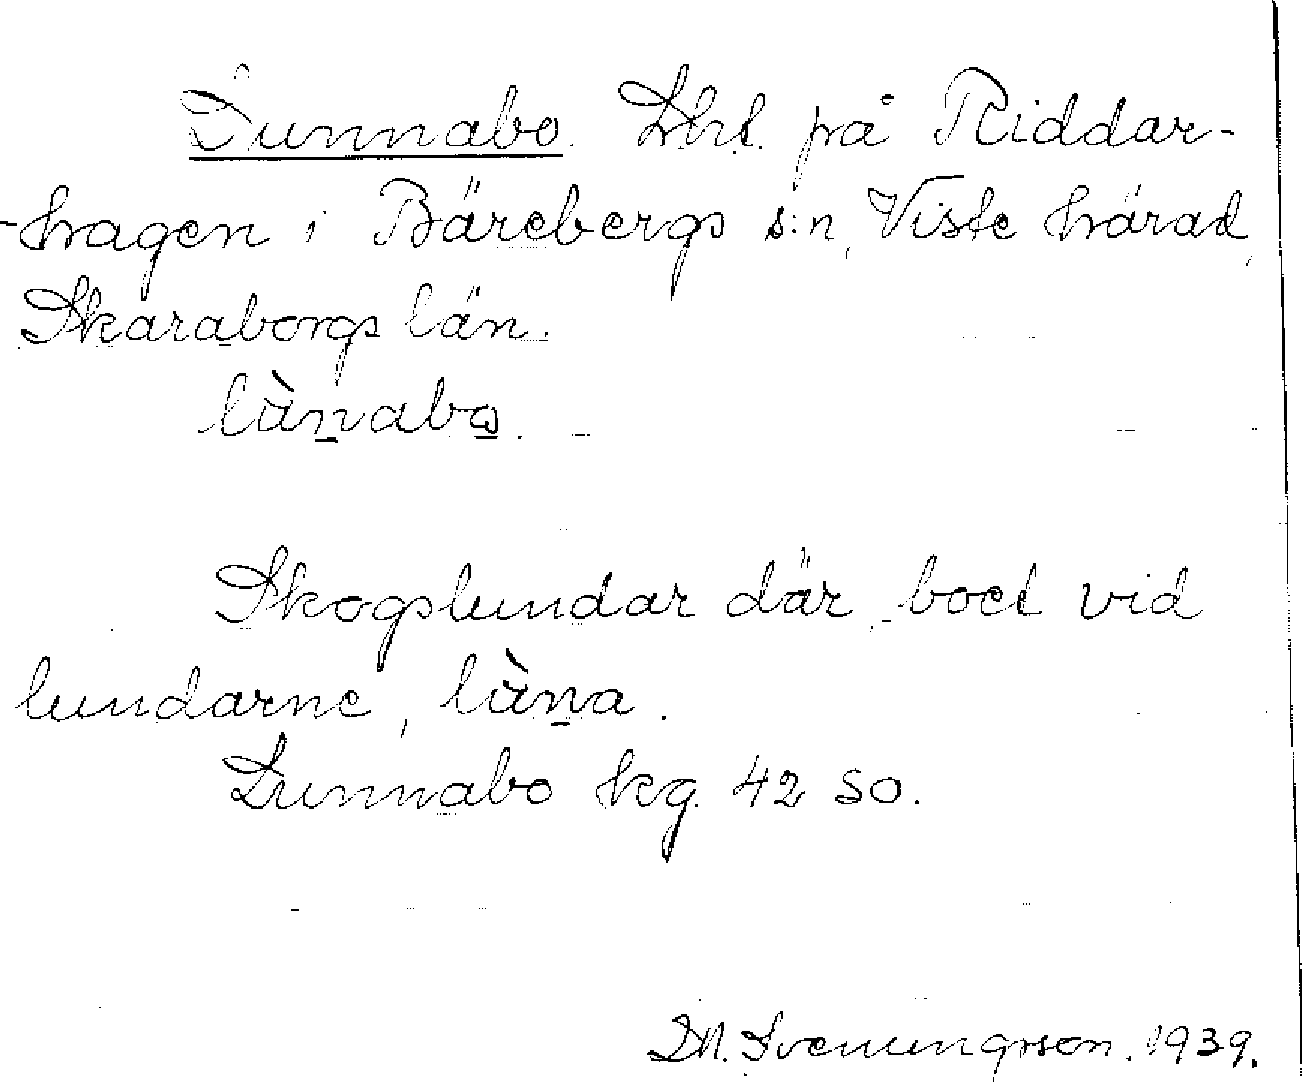 Lunnabo. Lht. på Riddar-
-hagen i Bärebergs s:n, Viste härad,
Skaraborgs län.
lùnabo.
Skogslundar där, boet vid
lundarne, lùna.
Lunnabo kg. 42 SO.
D.N. Svenungsson. 1939.